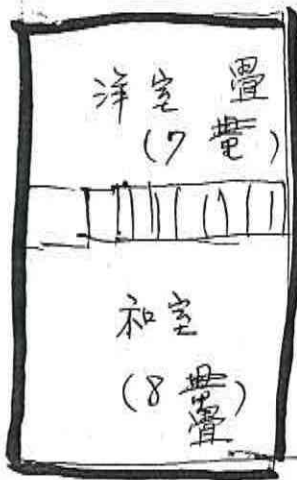 洋室 畳
(7畳)
和室
(8畳)